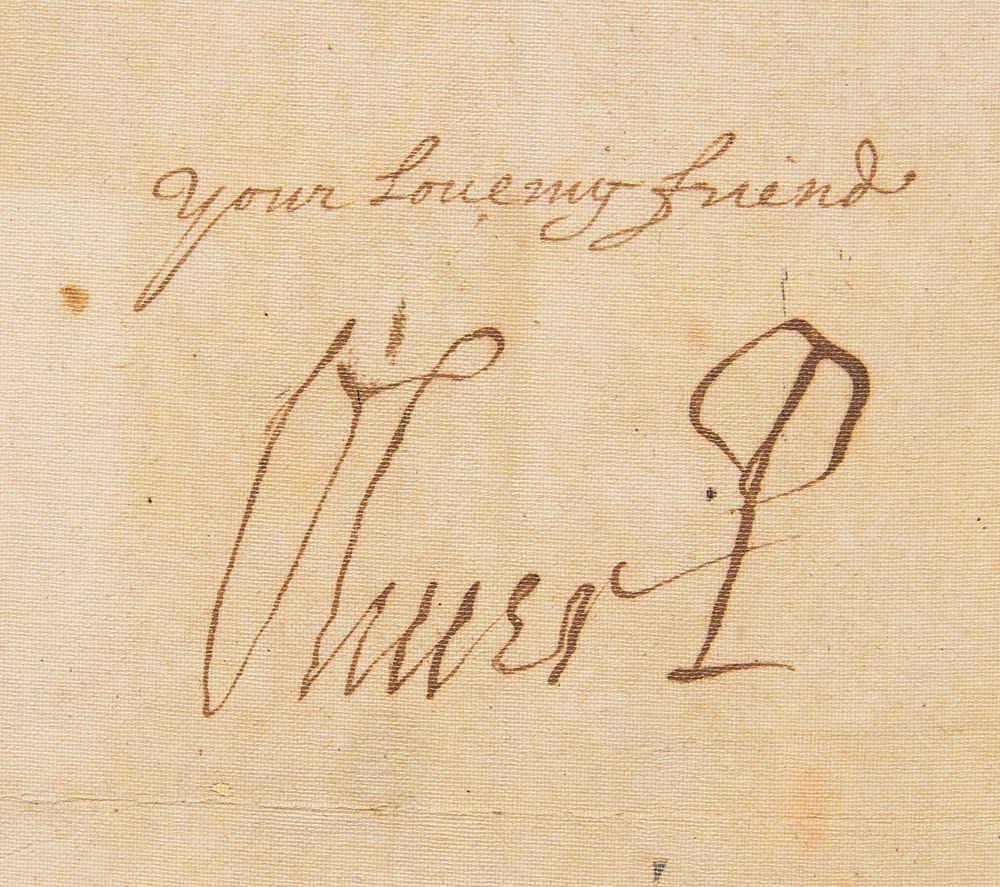 your loueing friend
Oliver P